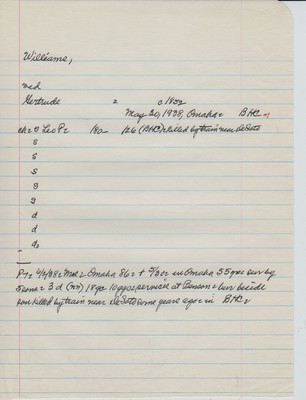 Williams,
md
Gertrude = c1852
May 20, 1938, Omaha = BHC
ch = 0 Leo P = 18a- 126 (BHC) = killed by train near DeSoto
s
s
s
s
g
d
d
d.
Omaha 86 = in Omaha 55 yrs sur by
5 sons = 3 d (nn) 18 gc 10 ggc = at Benson = bur beside
son killed by train near DeSoto some years ago = in BHC =